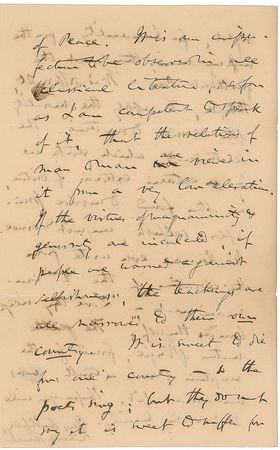 of Peace. It is an imper-
fection to be observed in all
classical literature so far
as I am competent to speak
of it, that the relations of
man to man are viewed in
it from a very low elevation.
If the virtues of magnanimity &
generosity are inculcated, if
people are warned against
selfishness, the teachings are
all narrowed to their own
country. It is sweet to die
for one's country – so the
poets sing; but they do not
say it is sweet to suffer for